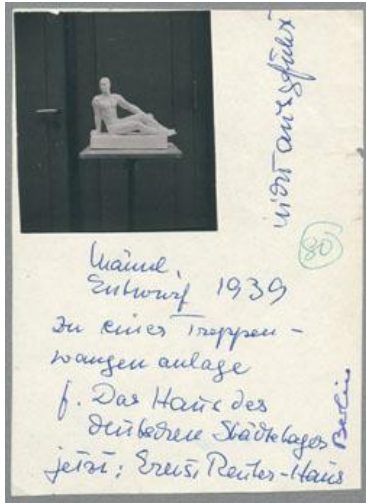 nicht ausgeführt
80
Männl.
Entwurf 1939
zu einer Treppen-
wangenanlage
f. Das Haus des
deutschen Städtetages
Berlin
jetzt: Ernst Reuter-Haus